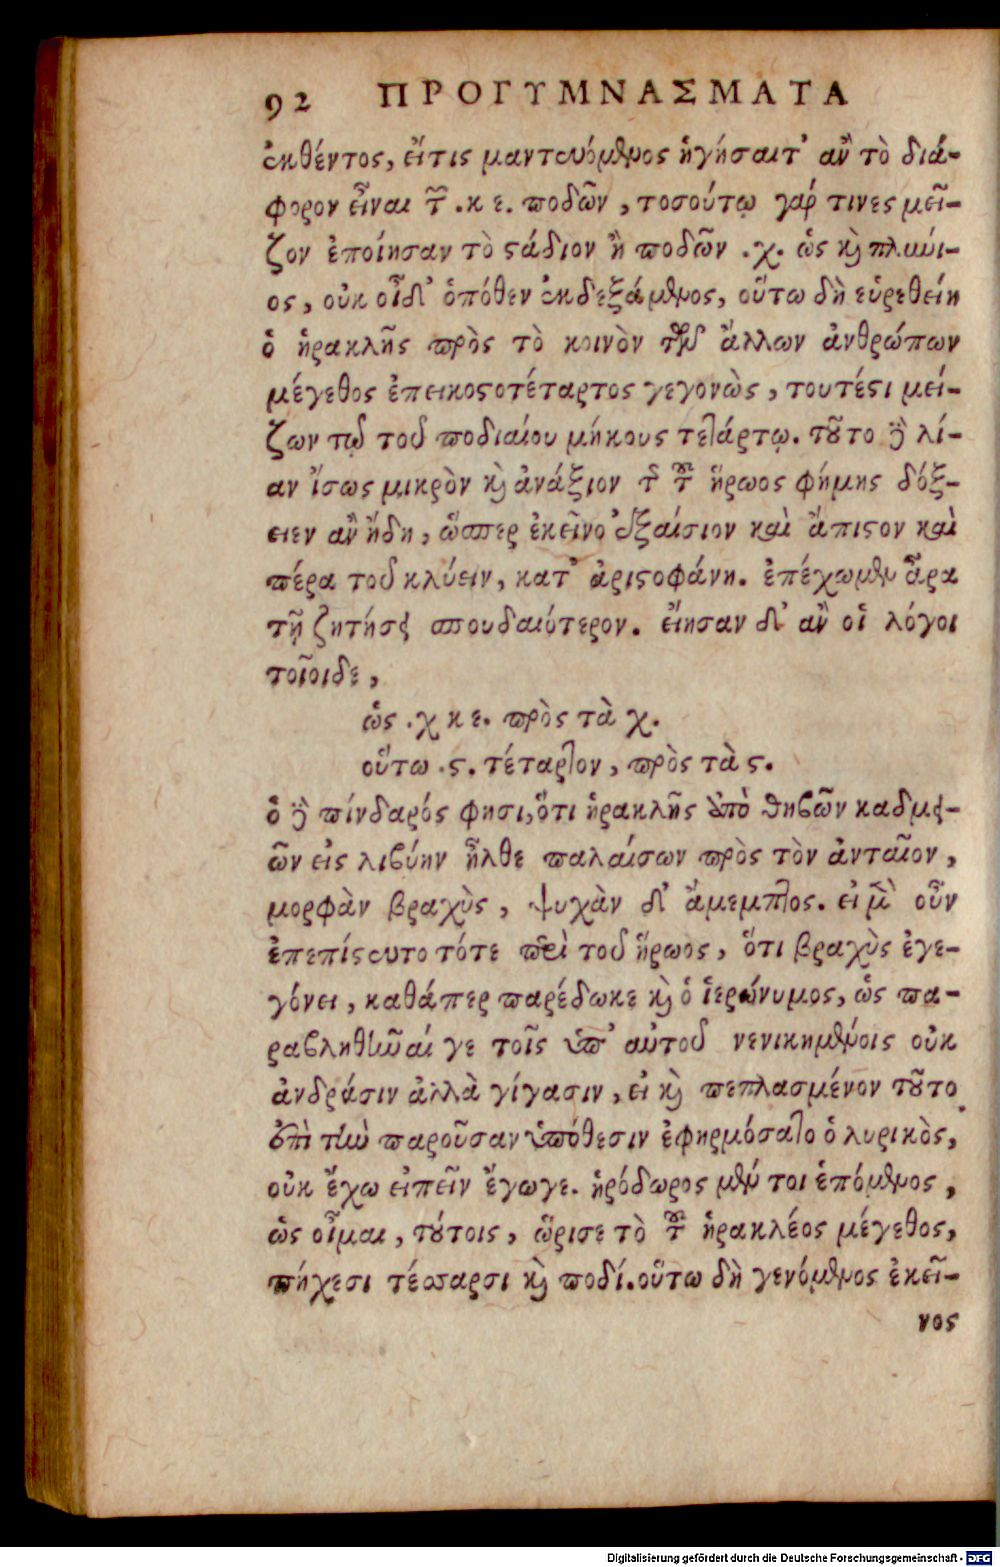 92 ΠΡΟΓΥΜΝΑΣΜΑΤΑ
ἐκθέντος, εἴτις μαντευόμενος ἡγήσαιτ' ἂν τὸ διά-
φορον εἶναι τῶν .κε. ποδῶν, τοσούτῳ γάρ τινες μεῖ-
ζον ἐποίησαν τὸ ϛάδιον ἢ ποδῶν .χ. ὡς καὶ πλιώι-
ος, οὐκ οἶδ' ὁπόθεν ἐκδεξάμενος, οὕτω δὴ εὑρεθείη
ὁ ἡρακλῆς πρὸς τὸ κοινὸν τῶν ἄλλων ἀνθρώπων
μέγεθος ἐπεικοϛοτέταρτος γεγονὼς, τουτέϛι μεί-
ζων τῷ τοῦ ποδιαίου μήκους τετάρτῳ. τοῦτο δὲ λί-
αν ἴσως μικρὸν καὶ ἀνάξιον τῆς τοῦ ἥρωος φήμης δόξ-
ειεν ἂν ἤδη, ὥσπερ ἐκεῖνο ἐξαίσιον καὶ ἄπιϛον καὶ
πέρα τοῦ κλύειν, κατ' ἀριϛοφάνη. ἐπέχωμεν ἆρα
τῇ ζητήσει σπουδαιότερον. εἴησαν δ' ἂν οἱ λόγοι
τοῖοιδε,
ὡς .χκε. πρὸς τὰ χ.
οὕτω .ϛ. τέταρτον, πρὸς τὰ ϛ.
ὁ δὲ πίνδαρός φησι, ὅτι ἡρακλῆς ἀπὸ θηβῶν καδμει-
ῶν εἰς λιβύην ἦλθε παλαίσων πρὸς τὸν ἀνταῖον,
μορφὰν βραχὺς, ψυχὰν δ' ἄμεμπτος. εἰ μὲν οὖν
ἐπεπίϛευτο τότε περὶ τοῦ ἥρωος, ὅτι βραχὺς ἐγε-
γόνει, καθάπερ παρέδωκε καὶ ὁ ἱερώνυμος, ὡς πα-
ραβληθῆναί γε τοῖς ὑπ' αὐτοῦ νενικημένοις οὐκ
ἀνδράσιν ἀλλὰ γίγασιν, εἰ καὶ πεπλασμένον τοῦτο
ἐπὶ τὴν παροῦσαν ὑπόθεσιν ἐφηρμόσατο ὁ λυρικὸς,
οὐκ ἔχω εἰπεῖν ἔγωγε. ἡρόδωρος μέν τοι ἑπόμενος,
ὡς οἶμαι, τούτοις, ὥρισε τὸ τοῦ ἡρακλέος μέγεθος,
πήχεσι τέσσαρσι καὶ ποδί. οὕτω δὴ γενόμενος ἐκεῖ-
νος
Digitalisierung gefördert durch die Deutsche Forschungsgemeinschaft - DFG